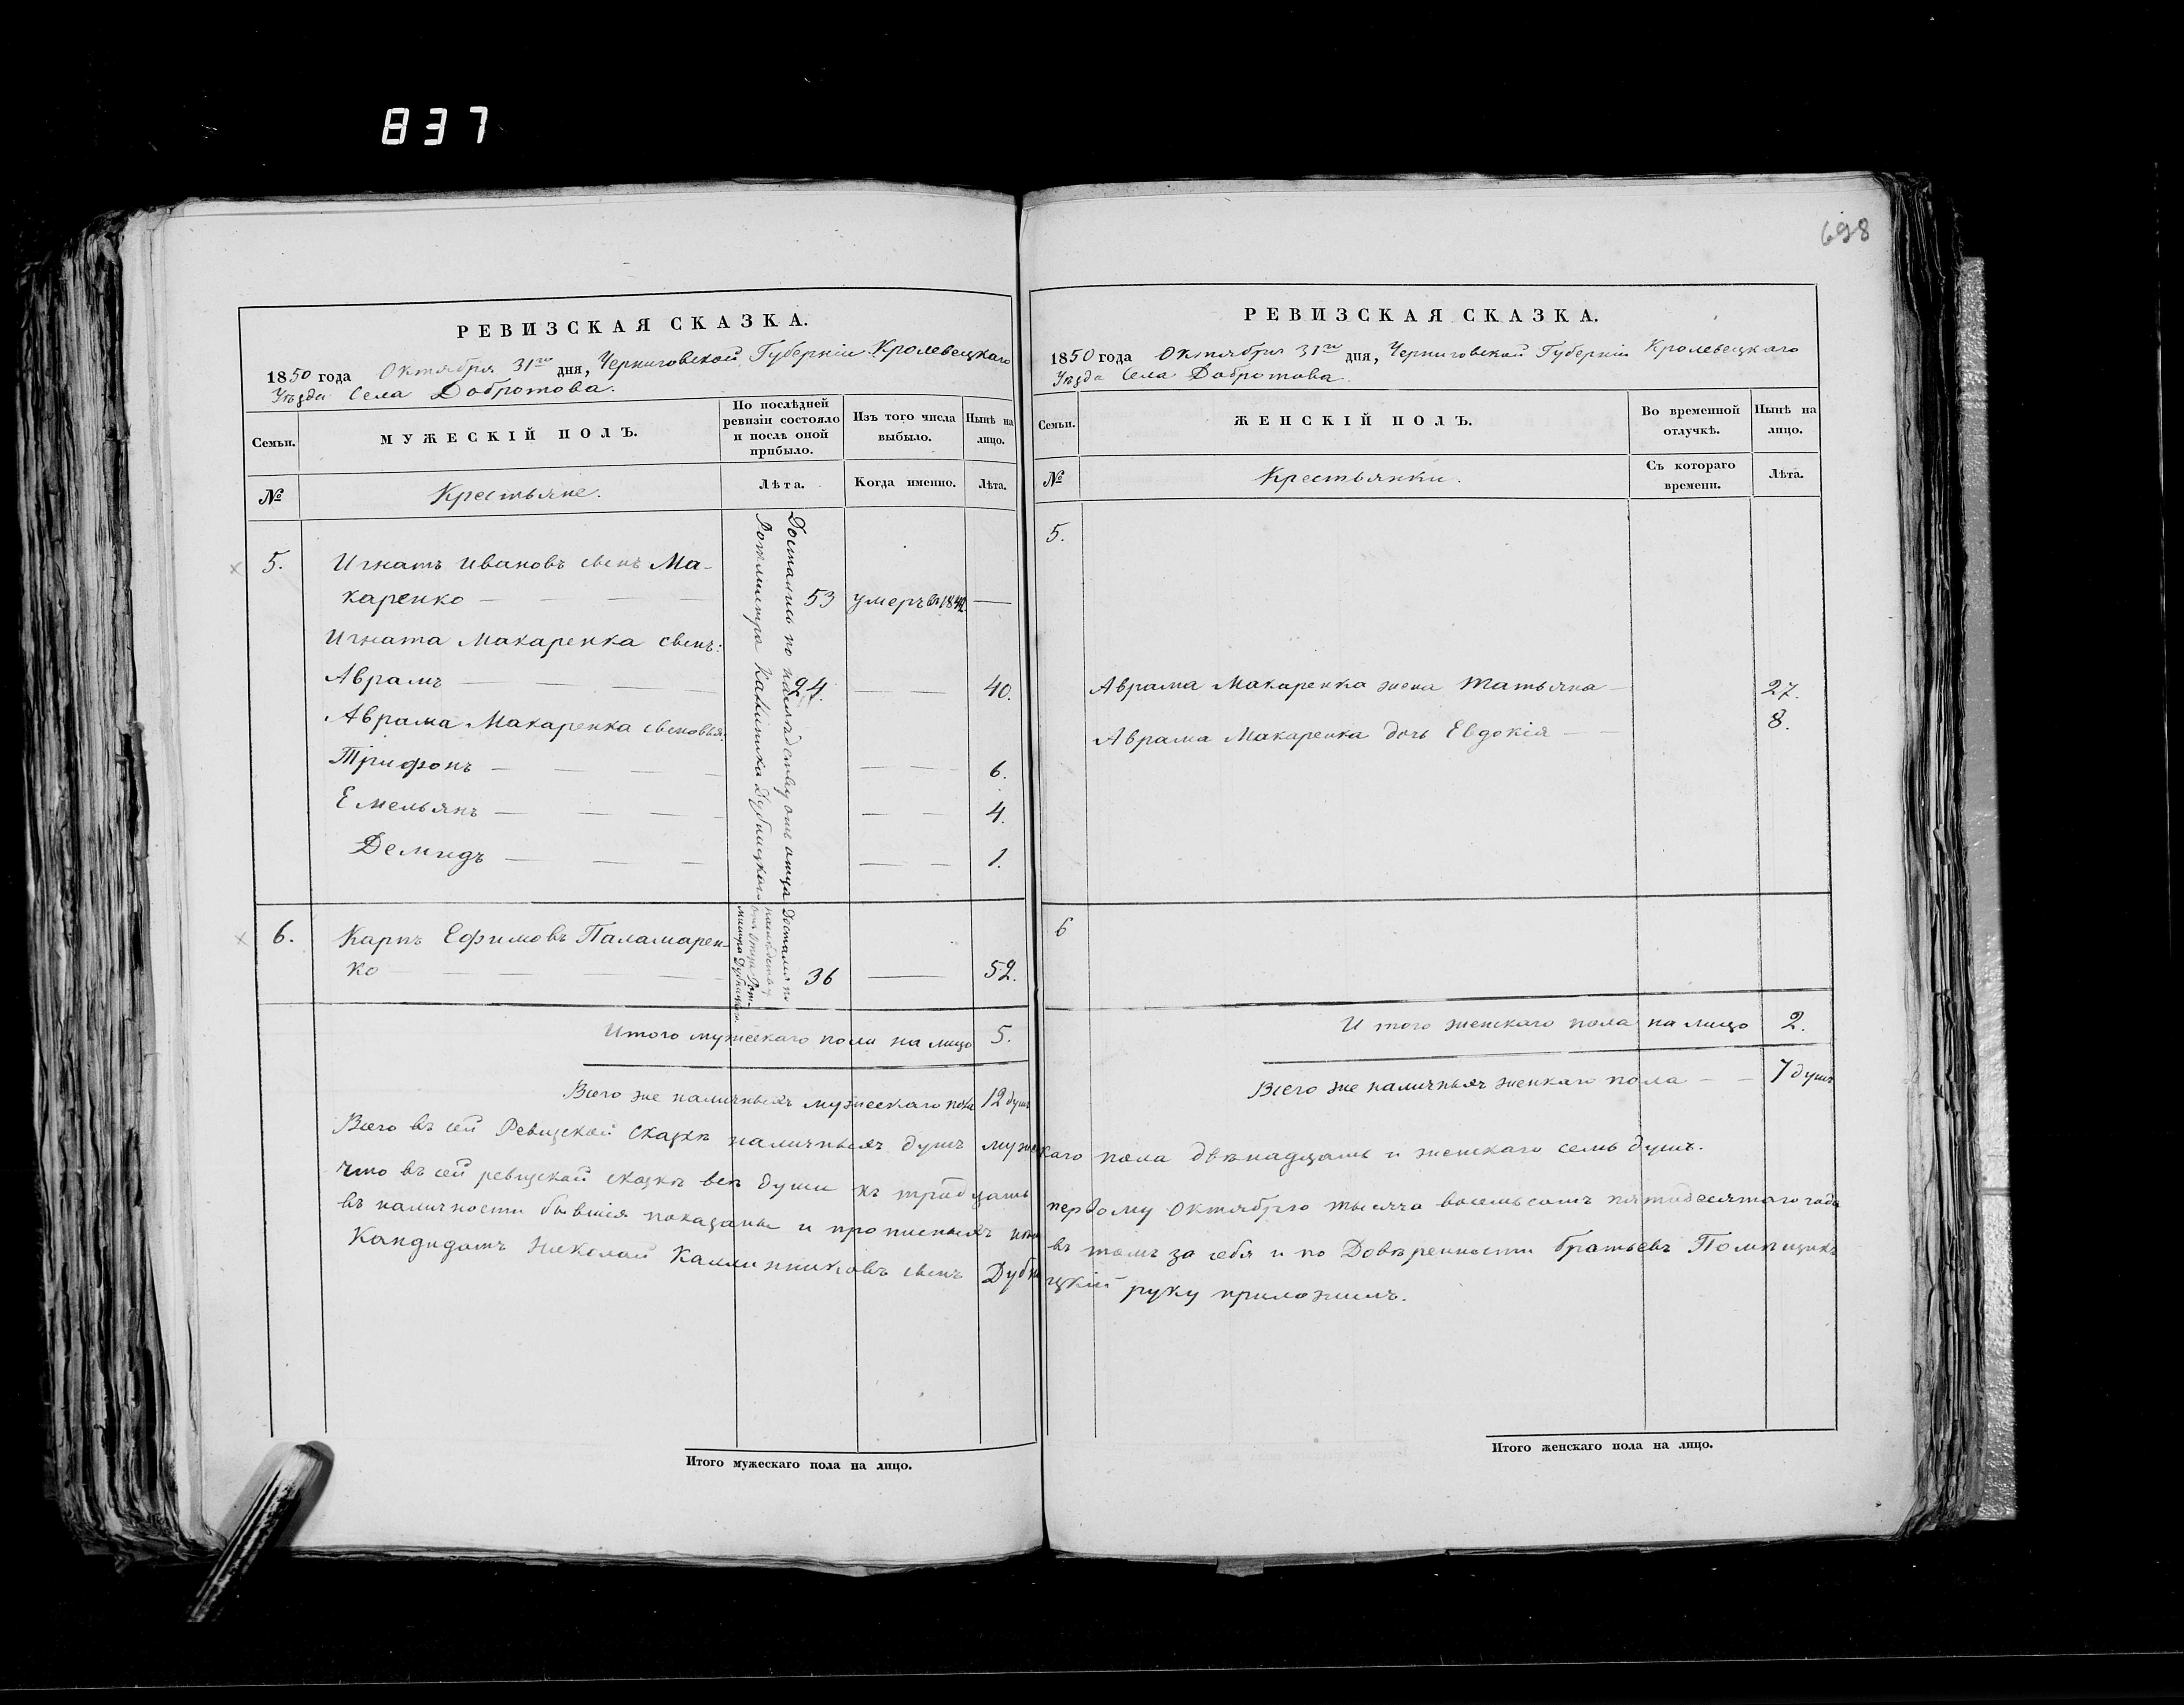 837
РЕВИЗСКАЯ СКАЗКА.
1850 года Октября 31го дня, Черниговской Губерніи Кролевецкаго
Уѣзда Села Добротова.
Семьи.
МУЖЕСКІЙ ПОЛЪ.
По послѣдней ревизіи состояло и послѣ оной прибыло.
Изъ того числа выбыло.
Нынѣ на лицо.
№
Крестьяне.
Лѣта.
Когда именно.
Лѣта.
Достались по наслѣдству отъ отца
Ротмистра Калиника Дубницкаго
5. Игнатъ Ивановъ сынъ Ма-
каренко — 53 умеръ въ 184 —
Игната Макаренка сынъ:
Аврамъ — 24. — 40.
Аврама Макаренка сыновья:
Трифонъ — — 6.
Емельянъ — — 4.
Демидъ — — 1.
Достался по
наслѣдству
отъ отца Рот-
мистра Дубницкаго.
6. Карпъ Ефимовъ Паламарен-
ко — 36 — 52.
Итого мужескаго пола на лицо 5.
Всего же наличныхъ мужескаго пола 12 душъ
Всего въ сей Ревизской Сказкѣ наличныхъ душъ муже
что въ сей ревизской сказкѣ всѣ души къ тридцать
въ наличности бывшія показаны и прописныхъ
Кандидатъ Николай Калинниковъ сынъ Дубни
Итого мужескаго пола на лицо.
698
РЕВИЗСКАЯ СКАЗКА.
1850 года Октября 31го дня, Черниговской Губерніи Кролевецкаго
Уѣзда Села Добротова.
Семьи.
ЖЕНСКІЙ ПОЛЪ.
Во временной отлучкѣ.
Нынѣ на лицо.
№
Крестьянки.
Съ котораго времени.
Лѣта.
5.
Аврама Макаренка жена Татьяна — 27.
Аврама Макаренка дочь Евдокія — — 8.
6
Итого женскаго пола на лицо 2.
Всего же наличныхъ женкаго пола — — 7 душъ
скаго пола двѣнадцать и женскаго семь душъ.
первому Октябрю тысяча восемьсотъ пятидесятаго года
въ томъ за себя и по Довѣренности братьевъ Помѣщикъ
цкій руку приложилъ.
Итого женскаго пола на лицо.